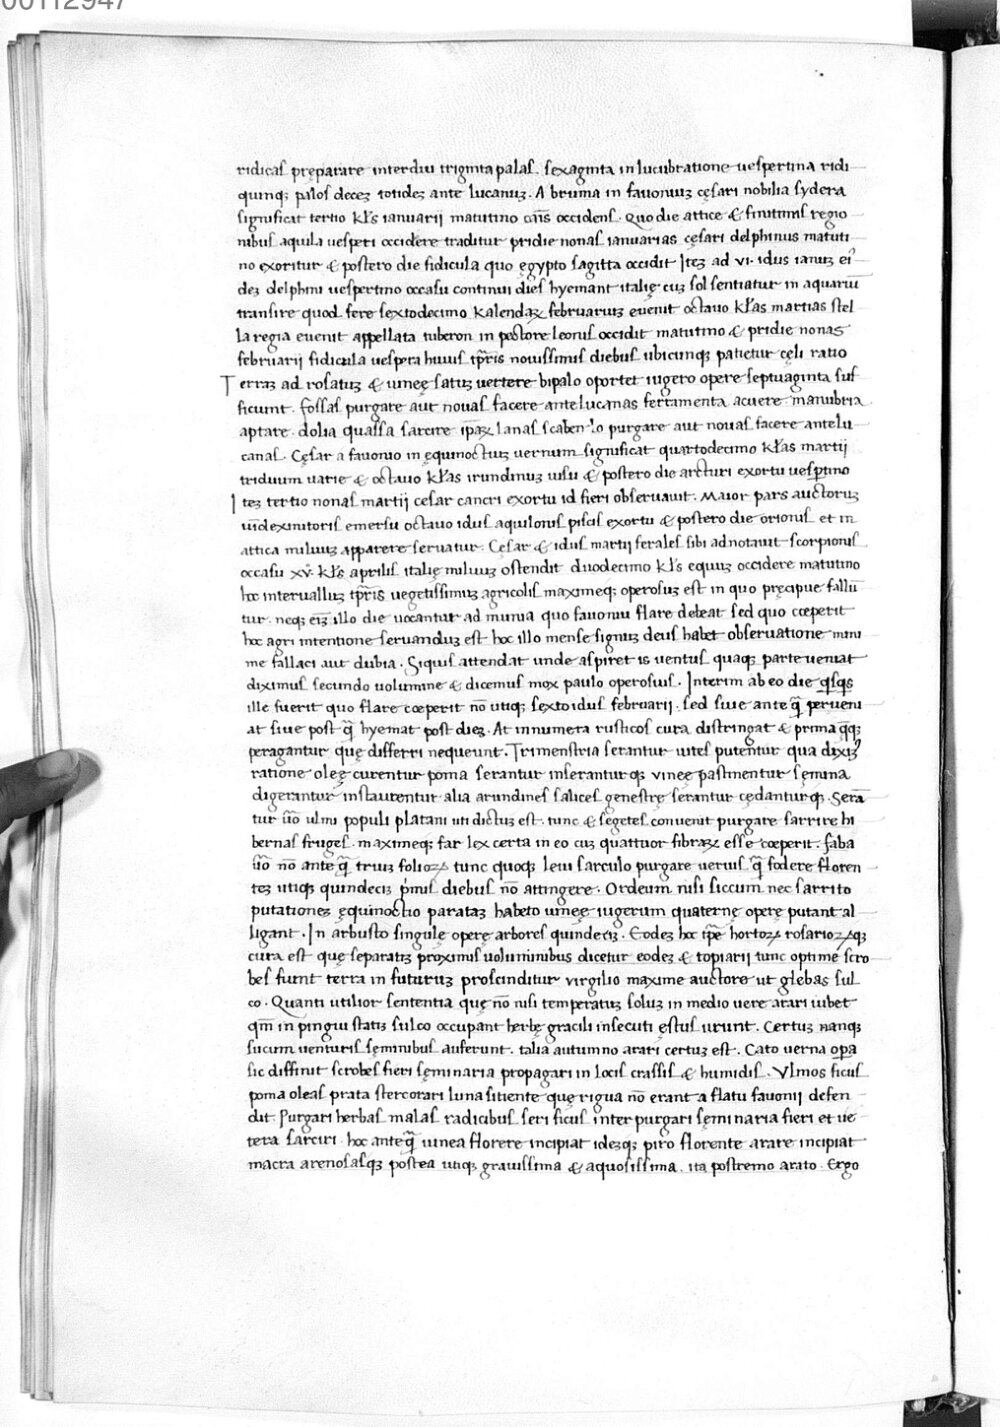 00112947
ridicas pręparare interdiu triginta palas. sexaginta in lucubratione uespertina ridi
quinqꝫ palos deceꝫ totideꝫ ante lucanuꝫ. A bruma in fauonuiꝫ cęsari nobilia sydera
significat tertio kl̅s ianuarij matutino can̅s occidens. Quo die attice & finitimis regio
nibus aquila uesperi occidere traditur pridie nonas ianuarias cęsari delphinus matuti
no exoritur & postero die fidicula quo ęgypto sagitta occidit Iteꝫ ad vi. idus ianuꝫ ei᾽
deꝫ delphini uespertino occasu continui dies hyemant italię cuꝫ sol sentiatur in aquariu̅
transire quod fere sextodecimo kalendaꝝ februariuꝫ euenit octauo kl̅as martias stel
la regia euenit appellata tuberon in pectore leonis occidit matutino & pridie nonas
februarij fidicula uespera huius tp̅ris nouissimis diebus ubicunqꝫ patietur cęli ratio
Terraꝫ ad rosatuꝫ & uineę satuꝫ uertere bipalo oportet iugero opere septuaginta suf
ficiunt. fossas purgare aut nouas facere antelucanas ferramenta acuere. manubria
aptare. dolia quassa sarcire ip̅aꝝ lanas scaben᾽lo purgare aut nouas facere antelu
canas. Cęsar a fauonio in ęquinoctuiꝫ uernum significat quartodecimo kl̅as martij
triduum uarie & octauo kl̅as irundinuꝫ uisu & postero die arcturi exortu uesꝑtino
Iteꝫ tertio nonas martij cesar cancri exortu id fieri obseruauit. Maior pars auctoruꝫ
ui̅dexinitoris emersu octauo idus aquilonis piscis exortu & postero die orionis et in
attica miluuꝫ apparere seruatur. Cęsar & idus martij ferales sibi adnotauit scorpionis
occasu xv. kl̅s aprilis italię miluuꝫ ostendit duodecimo kl̅s equuꝫ occidere matutino
hoc interualluꝫ tp̅ris uegetissimuꝫ agricolis maximeqꝫ operosuꝫ est in quo pręcipue fallu̅
tur. neqꝫ eiꝫ illo die uocantur ad munia quo fauoniu flare debeat sed quo cœperit
hoc agri intentione seruanduꝫ est hoc illo mense signuꝫ deus habet obseruatione mini
me fallaci aut dubia. Siquis attendat unde aspiret is uentus quaqꝫ parte ueniat
diximus secundo uolumine & dicemus mox paulo operosius. Interim ab eo die qͥsqͥs
ille fuerit quo flare cœperit no̅ utiqꝫ sexto idus februarij. sed siue ante q̅ perueni
at siue post q̅ hyemat post dieꝫ. At innumera rusticos cura distringat & prima q̅qꝫ
peragantur quę differri nequeunt. Trimenstria serantur uites putentur qua dixiꝫ᾽
ratione oleę curentur poma serantur inseranturqꝫ vineę pastinentur sęmina
digerantur instaurentur alia arundines salices genestrę serantur cędanturqꝫ. Sera̅
tur uͦo ulmi populi platani uti dictuꝫ est. tunc & segetes conuenit purgare sarrire hi
bernas fruges. maximeqꝫ far lex certa in eo cuꝫ quattuor fibraꝝ esse cœperit. faba
uͦo no̅ ante q̅ triuꝫ folioꝝ tunc quoqꝫ leui sarculo purgare uerius q̅ fodere floren
teꝫ utiqꝫ quindeciꝫ pͥmis diebus no̅ attingere. Ordeum nisi siccum nec sarrito
putationeꝫ ęquinoctio parataꝫ habeto uineę iugerum quaternę operę putant al
ligant. In arbusto singulę operę arbores quindeciꝫ. Eodeꝫ hoc tp̅e hortoꝝ rosarioꝝqꝫ
cura est quę separatiꝫ proximis uoluminibus dicetur eodeꝫ & topiarij tunc optime scro
bes fiunt terra in futuruꝫ proscinditur virgilio maxime auctore ut glebas sul
co. Quanti utilior sententia quę no̅ nisi temperatuꝫ soluꝫ in medio uere arari iubet
qm̅ in pingui statiꝫ sulco occupant herbę gracili insecuti ęstus urunt. Certuꝫ nanqꝫ
sucum uenturis sęminibus auferunt. talia autumno arari certuꝫ est. Cato uerna oꝑa
sic diffinit scrobes fieri sęminaria propagari in locis crassis & humidis. Vlmos ficus
poma oleas prata stercorari luna sitiente quę rigua no̅ erant a flatu fauonij defen
dit. Purgari herbas malas radicibus seri ficus interpurgari sęminaria fieri et ue
tera sarciri. hoc ante q̅ uinea florere incipiat ideꝫqꝫ piro florente arare incipiat
macra arenosasqꝫ postea utiqꝫ grauissima & aquosissima. ita postremo arato. Ergo